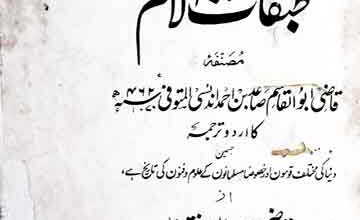 طبقات الامم
مصنفہ
قاضی ابوالقاسم صاعد بن احمد اندلسی المتوفی ۴۶۲ھ
کا اردو ترجمہ
جسمیں
دنیا کی مختلف قوموں اور خصوصاً مسلمانوں کے علوم و فنون کی تاریخ ہے،
از
قاضی